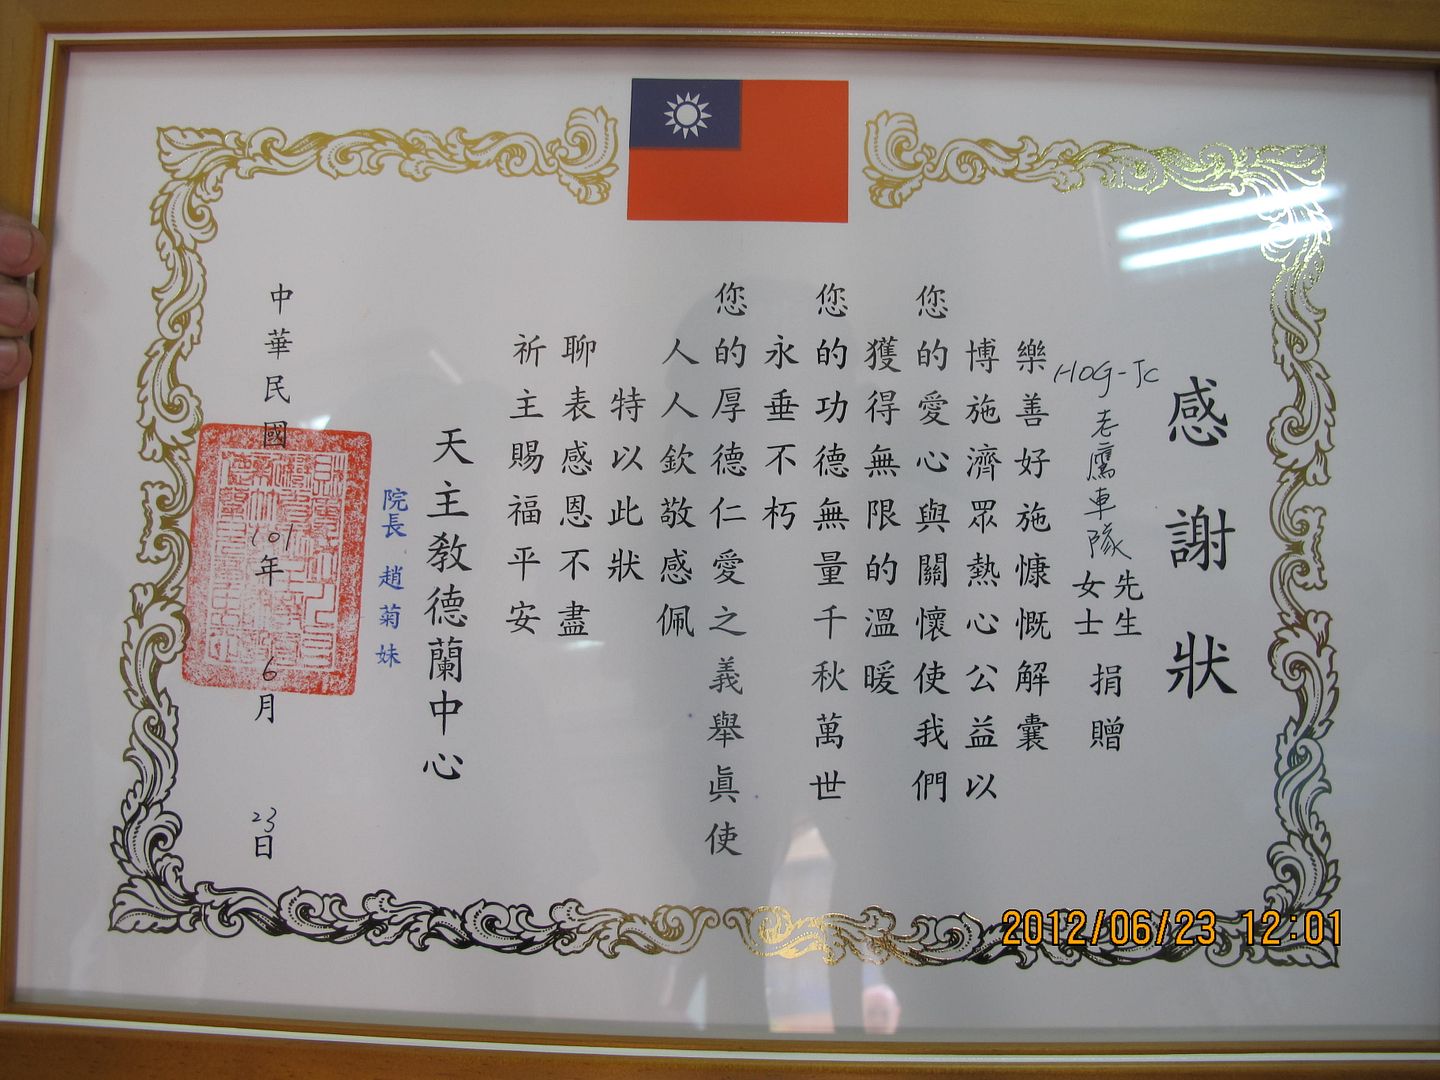 感謝狀
HOG-TC 老鷹車隊 先生 女士 捐贈
樂善好施慷慨解囊
博施濟眾熱心公益以
您的愛心與關懷使我們
獲得無限的溫暖
您的功德無量千秋萬世
永垂不朽
您的厚德仁愛之義舉眞使
人人人欽敬感佩
特以此狀
聊表感恩不盡
祈主賜福平安
天主教德蘭中心
院長 趙菊妹
中華民國101年6月23日
2012/06/23 12:01